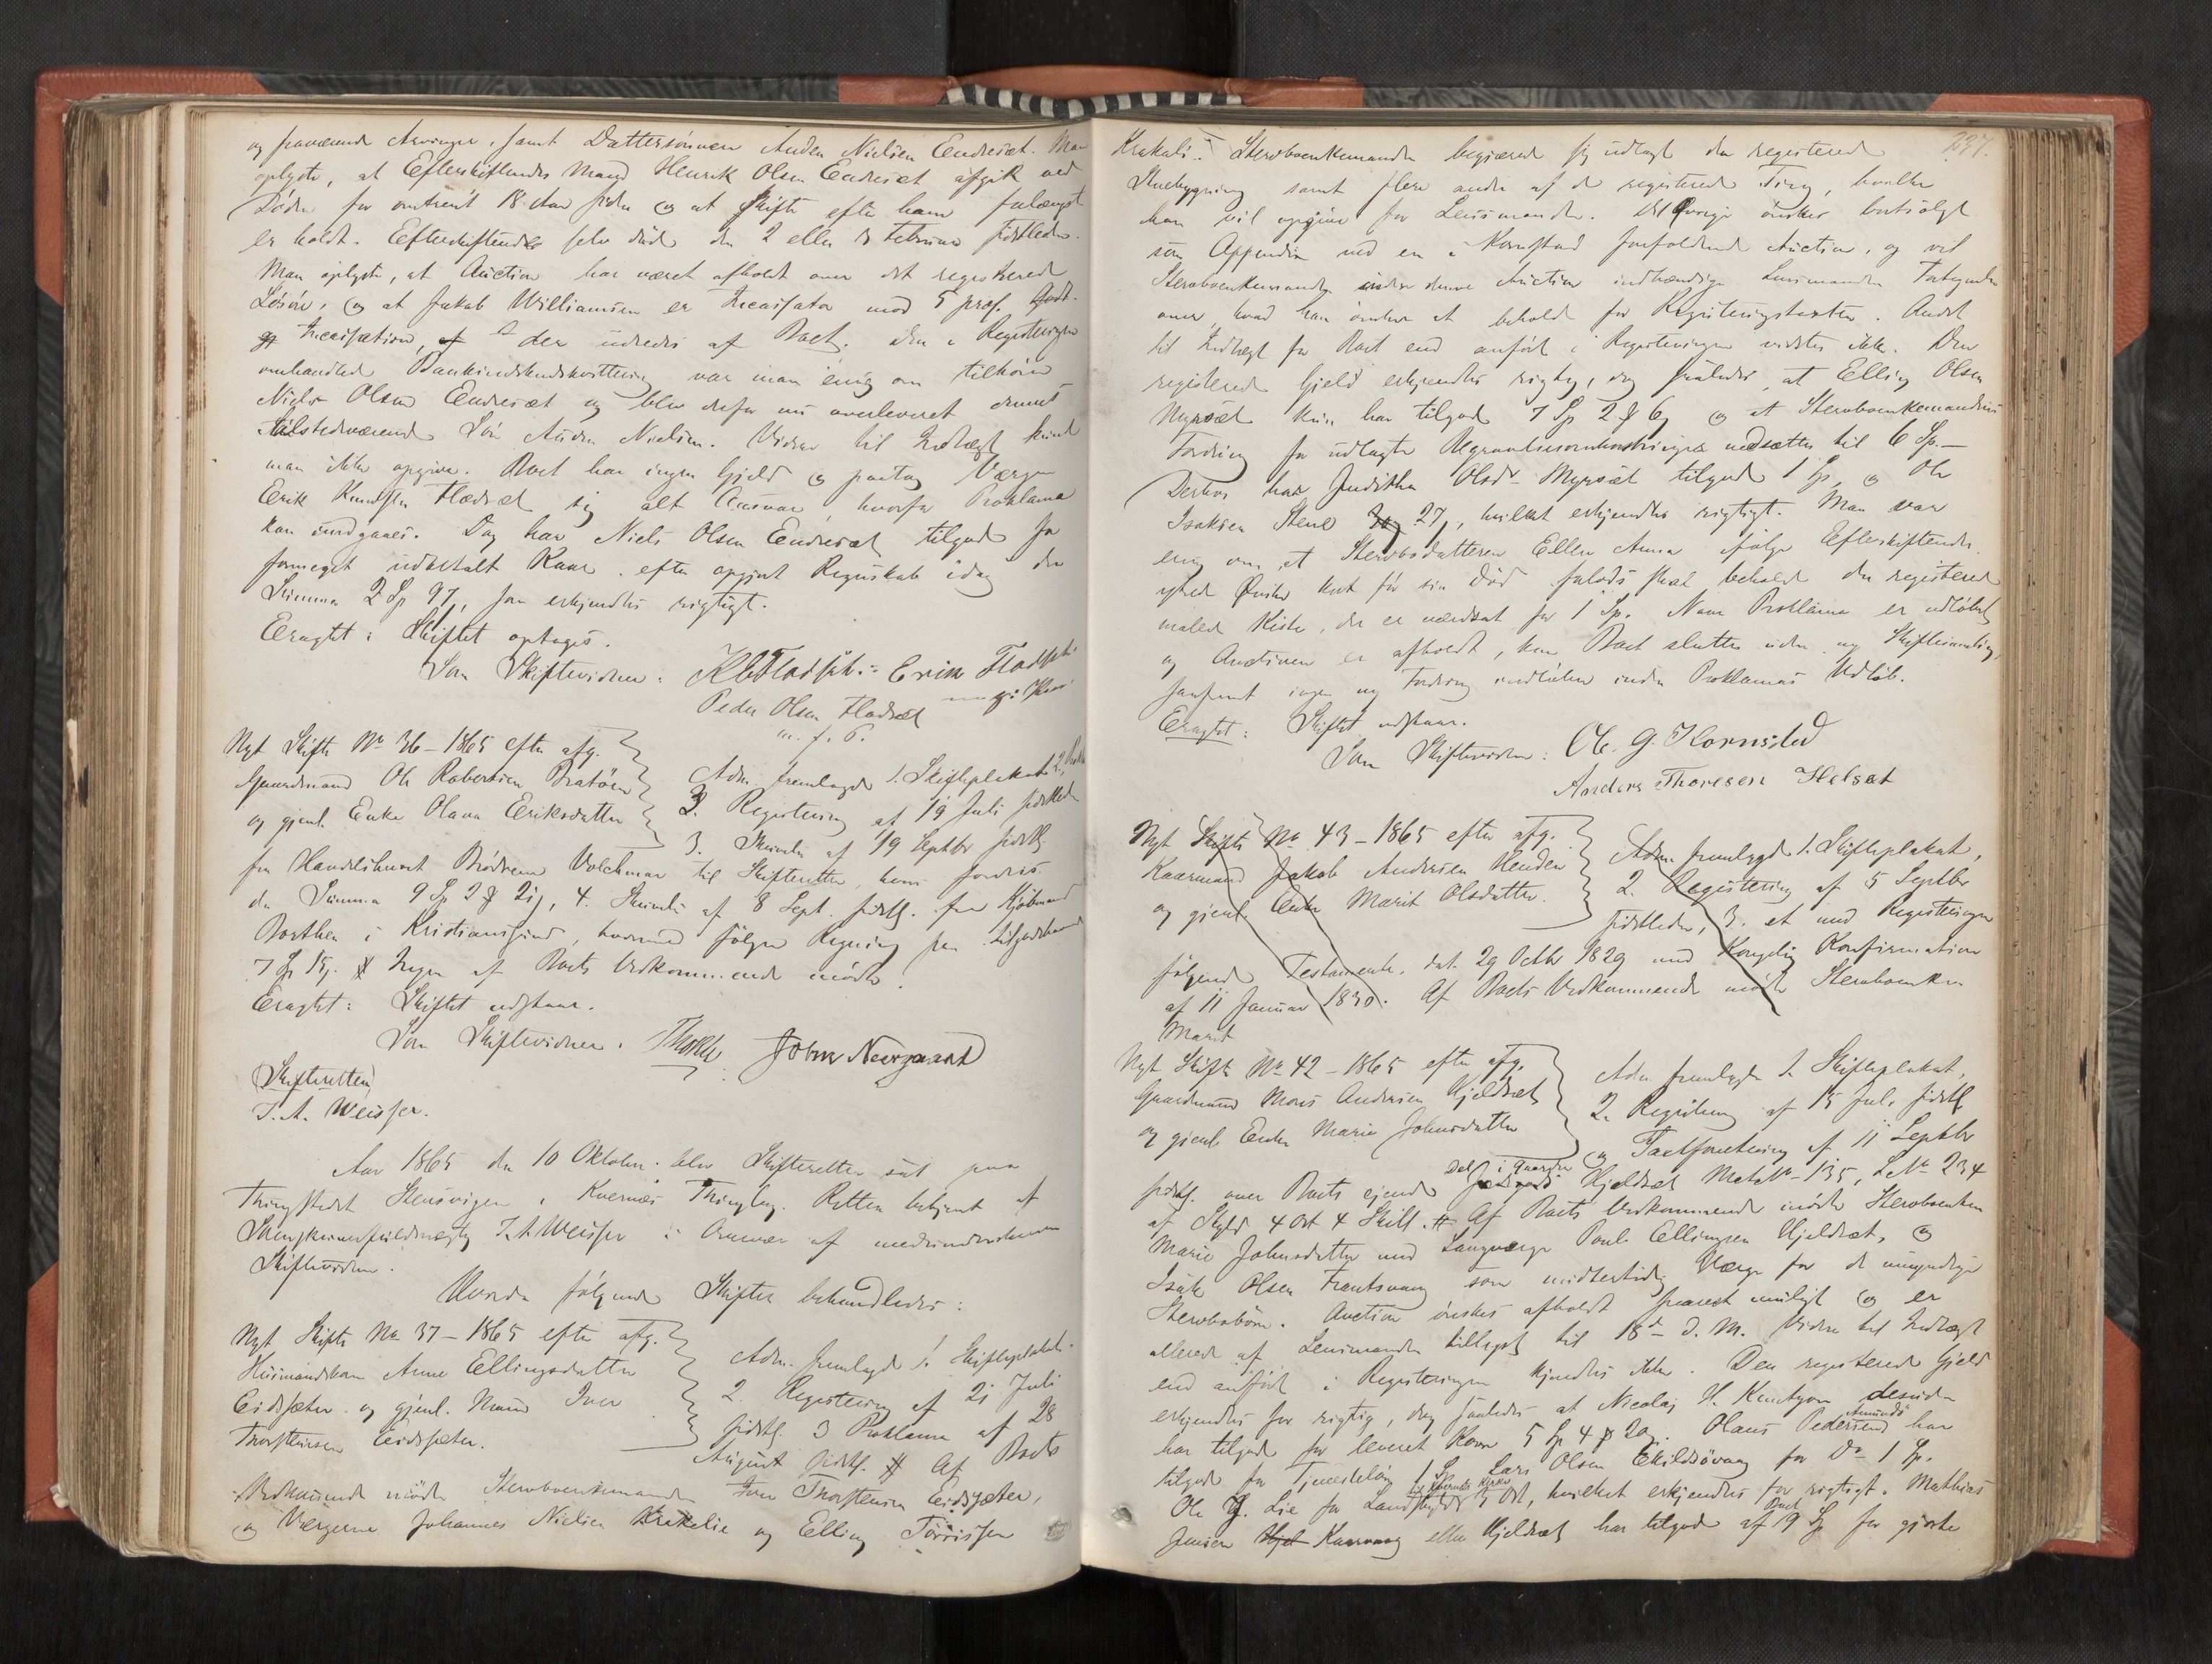 og fraværende Arvinger, samt Dattersønnen Anders Nielsen Endresæt. Man
oplyste, at Efterskiftendes Mand Henrik Olsen Endresæt afgik ved
Døden for omtrent 18 Aar siden og at Skifte efter ham forlængst
er holdt. Efterskiftende selv døde den 2 eller 3 Februar sidstleden.
Man oplyste, at Auction har været afholdt over det registrerede
Løsøre, og at Jakob Williamsen er Incassator mod 5 proc. Godt-
Incassation, der udredes af Boet. Den i Registeringen
omhandlede Bankindskudskvittering var man enig om tilhører
Niels Olsen Endresæt og blev derfor nu overleveret dennes
tilstedværende Søn Anders Nielsen. Videre til Indtægt kunde
man ikke opgive. Boet har ingen Gjeld og paatog Værgen
Erik Knudsen Fladsæt sig alt Ansvar, hvorfor Proklama
kan undgaaes. Dog har Niels Olsen Endresæt tilgode for
formeget udbetalt Kaar efter opgjort Regnskab idag den
Summa 2 Sp 97, som erkjendtes rigtigt.
Eragtet: Skiftet optages.
Som Skiftevidner: Erik Fladset
Peder Olsen Fladsæt
m. f. P.
Nyt Skifte No 36 - 1865 efter afg.
Gaardmand Ole Robertsen Bratøen
og gjenl. Enke Olava Eriksdatter
Adm. fremlagde 1. Skifteplakat
2. Registering af 19 Juli sidstleden
3. Skrivelse af 19 Septbr sidstl.
fra Handelshuset Brødrene Volckmar til Skifteretten, hvori fordres
den Summa 9 Sp 2 # 21, 4. Skrivelse af 8 Sept. sidstl. fra Kjøbmand
Dorthen i Kristiansund, hvormed følger Regning paa tilgodehavende
7 Sp 15. # Ingen af Boets Vedkommende mødte.
Eragtet: Skiftet udstaar.
Som Skiftevidner. John Neergaard
Skifteretten
J. A. Weisser.
Aar 1865 den 10 Oktober blev Skifteretten sat paa
Thingstedet Stensvigen i Kvernæs Thinglag. Retten betjent af
Sorenskriverfuldmægtig J. A. Weisser i Overvær af medunderskrevne
Skiftevidner.
Hvorda følgende Skifter behandledes:
Nyt Skifte No 37 - 1865 efter afg.
Huusmandskone Anne Ellingsdatter
Eidsæter og gjenl. Mand Iver
Thorstensen Eidsæter.
Adm. fremlagde 1. Skifteplakat.
2. Registering af 21 Juli
sidstl. 3 Proklama af 28
August sidstl. # Af Boets
Vedkommende mødte Stervboenkemanden Iver Thorstensen Eidsæter,
og Værgerne Johannes Nielsen Krakelie og Elling Torrissen
237.
Krakeli. Stervboenkemanden begjærede sig udlagt den registerede
Stuebygning samt flere andre af de registerede Ting, hvilke
han vil opgive for Lensmanden. Det Øvrige ønskes bortsolgt
som Appendix ved en i Kornstad forefaldende Auction, og vil
Stervboenkemanden inden denne Auction indhændige Lensmanden Fortegnelse
over, hvad han ønsker at beholde for Registeringstaxten. Andet
til Indtægt for Boet end anført i Registeringen vidstes ikke. Den
registerede Gjeld erkjendtes rigtig, dog saaledes, at Elling Olsen
Myrsæt kun har tilgode 7 Sp 2 # 6 og at Stervboenkemandens
Fordring for udlagte Begravelsesomkostninger nedsættes til 6 Sp. -
Derhos har Juditha Olsdr Myrsæt tilgode 1 Sp, og Ole
Isaksen Stene 27, hvilket erkjendtes rigtigt. Man var
enig om, at Stervbodatteren Ellen Anna ifølge Efterskiftendes
ytrede Ønske kort før sin Død forlods skal beholde den registerede
malede Kiste, der er værdsat for 1 Sp. Naar Proklama er udløbet
og Auctionen er afholdt, kan Boet sluttes uden ny Skiftesamling,
saafremt ingen ny Fordring indløber inden Proklamas Udløb.
Eragtet: Skiftet udstaar.
Som Skiftevidner: Ole G. Kornsted
Anders Thoresen Helsæt
Nyt Skifte No 43 - 1865 efter afg.
Kaarmand Jakob Andersen Henden
og gjenl. Enke Marit Olsdatter.
Adm. fremlagde 1. Skifteplakat,
2. Registering af 5 Septbr
sidstleden, 3. et med Registeringen
følgende Testamente, dat. 29 Octbr 1829 med Kongelig Konfirmation
af 11 Januar 1830. Af Boets Vedkommende mødte Stervboenken
Marit
Nyt Skifte No 42 - 1865 efter afg.
Gaardmand Mons Andersen Hjeldsæt
og gjenl. Enke Marie Johnsdatter
Adm. fremlagde 1. Skifteplakat,
2. Registering af 15 Juli sidstl
og Taxtforretning af 11 Septbr
sidstl. over Boets ejende Del i Gaarden Hjeldsæt Mat No 135, L No 234
af Skyld 4 Ort 4 Skill. # Af Boets Vedkommende mødte Stervboenken
Marie Johnsdatter med Laugværge Poul Ellingsen Hjeldsæt, og
Isak Olsen Frantsvaag som midlertidig Værge for de umyndige
Stervbobørn. Auction ønskes afholdt snarest muligt og er
allerede af Lensmanden tillyst til 18d d. M. Videre til Indtægt
end anført i Registeringen kjendtes ikke. Den registerede Gjeld
erkjendtes for rigtig, dog saaledes at Nicolaj H. Knudtzon desuden
har tilgode for leveret Korn 5 Sp 4 # 20. Olaus Pedersen har
tilgode for Tjenesteløn 1 Sp. Lars Olsen Ekildsøvaag for Do 1 Sp.
Ole G. Lie for Landskyld 5 Ort, hvilket erkjendtes for rigtigt. Mathias
Jensen Kaarvaag eller Hjeldsæt har tilgode af Boet 19 Sp for gjorte